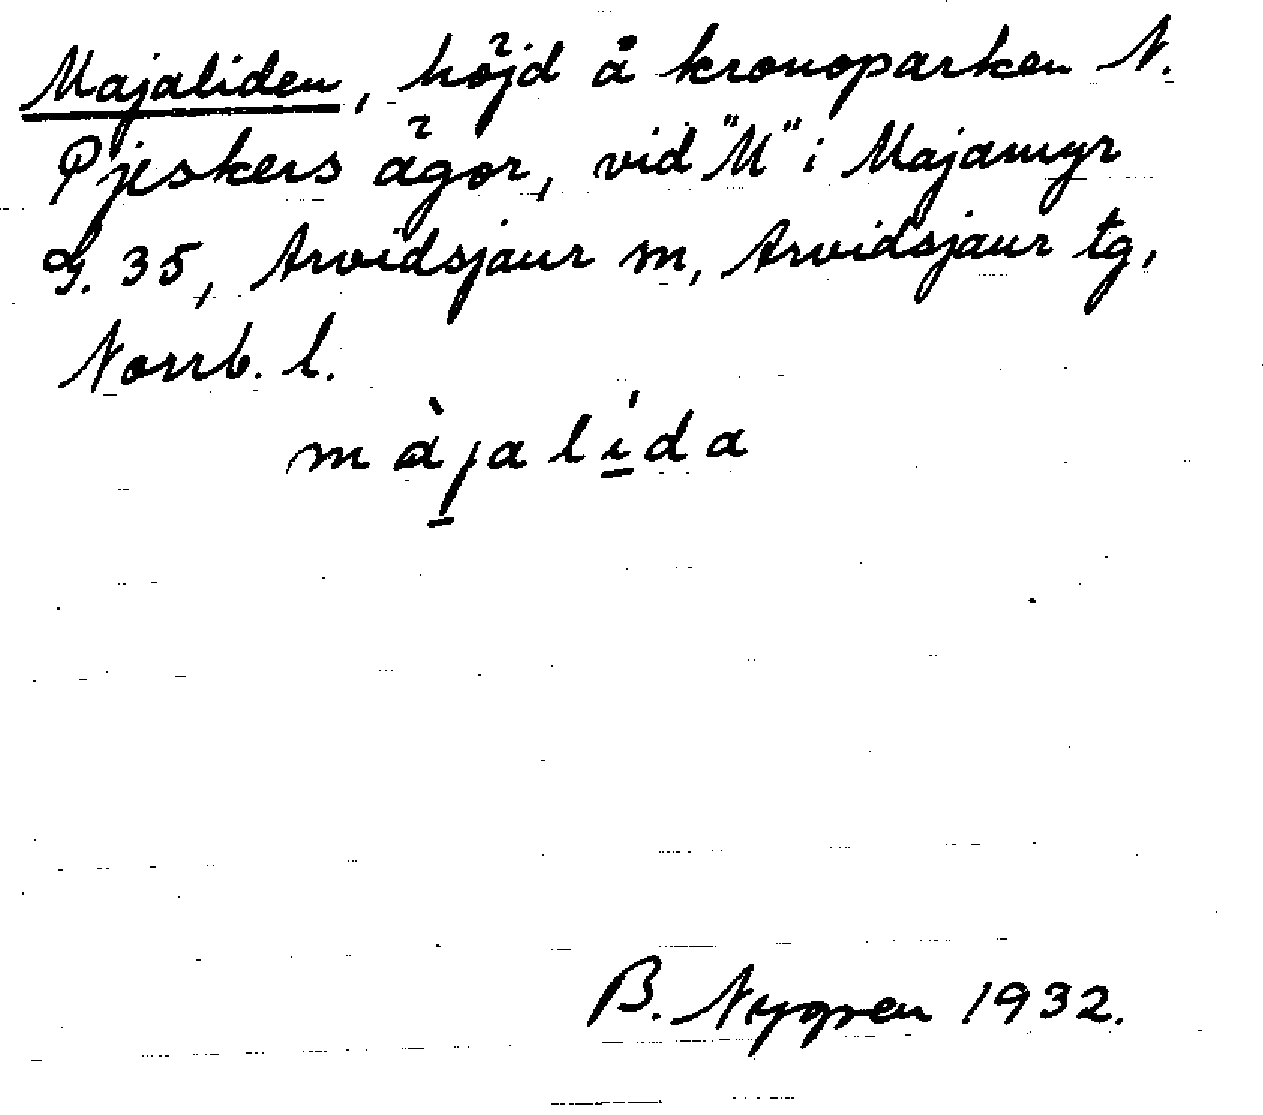 Majaliden, höjd å kronoparken N.
Pjeskers ägor, vid "M" i Majamyr
G. 35, Arvidsjaur m, Arvidsjaur tg,
Norrb. l.
màjalída
B. Nygren 1932.